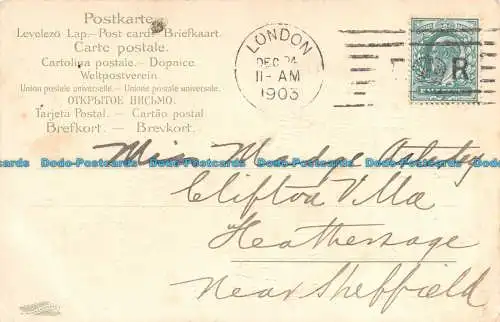 Postkarte
Levelező Lap.—Post card.—Briefkaart.
Carte postale.
Cartolina postale.—Dopnice.
Weltpostverein.
Union postale universelle.—Unione postale universale.
ОТКРЫТОЕ ПИСЬМО.
Tarjeta Postal.—Cartão postal
Brefkort.—Brevkort.
LONDON
DEC 24
11-AM
1903
R
Miss Madge
Clifton Villa
Heathersage
Near Sheffield
Dodo-Postcards Dodo-Postcards Dodo-Postcards Dodo-Postcards